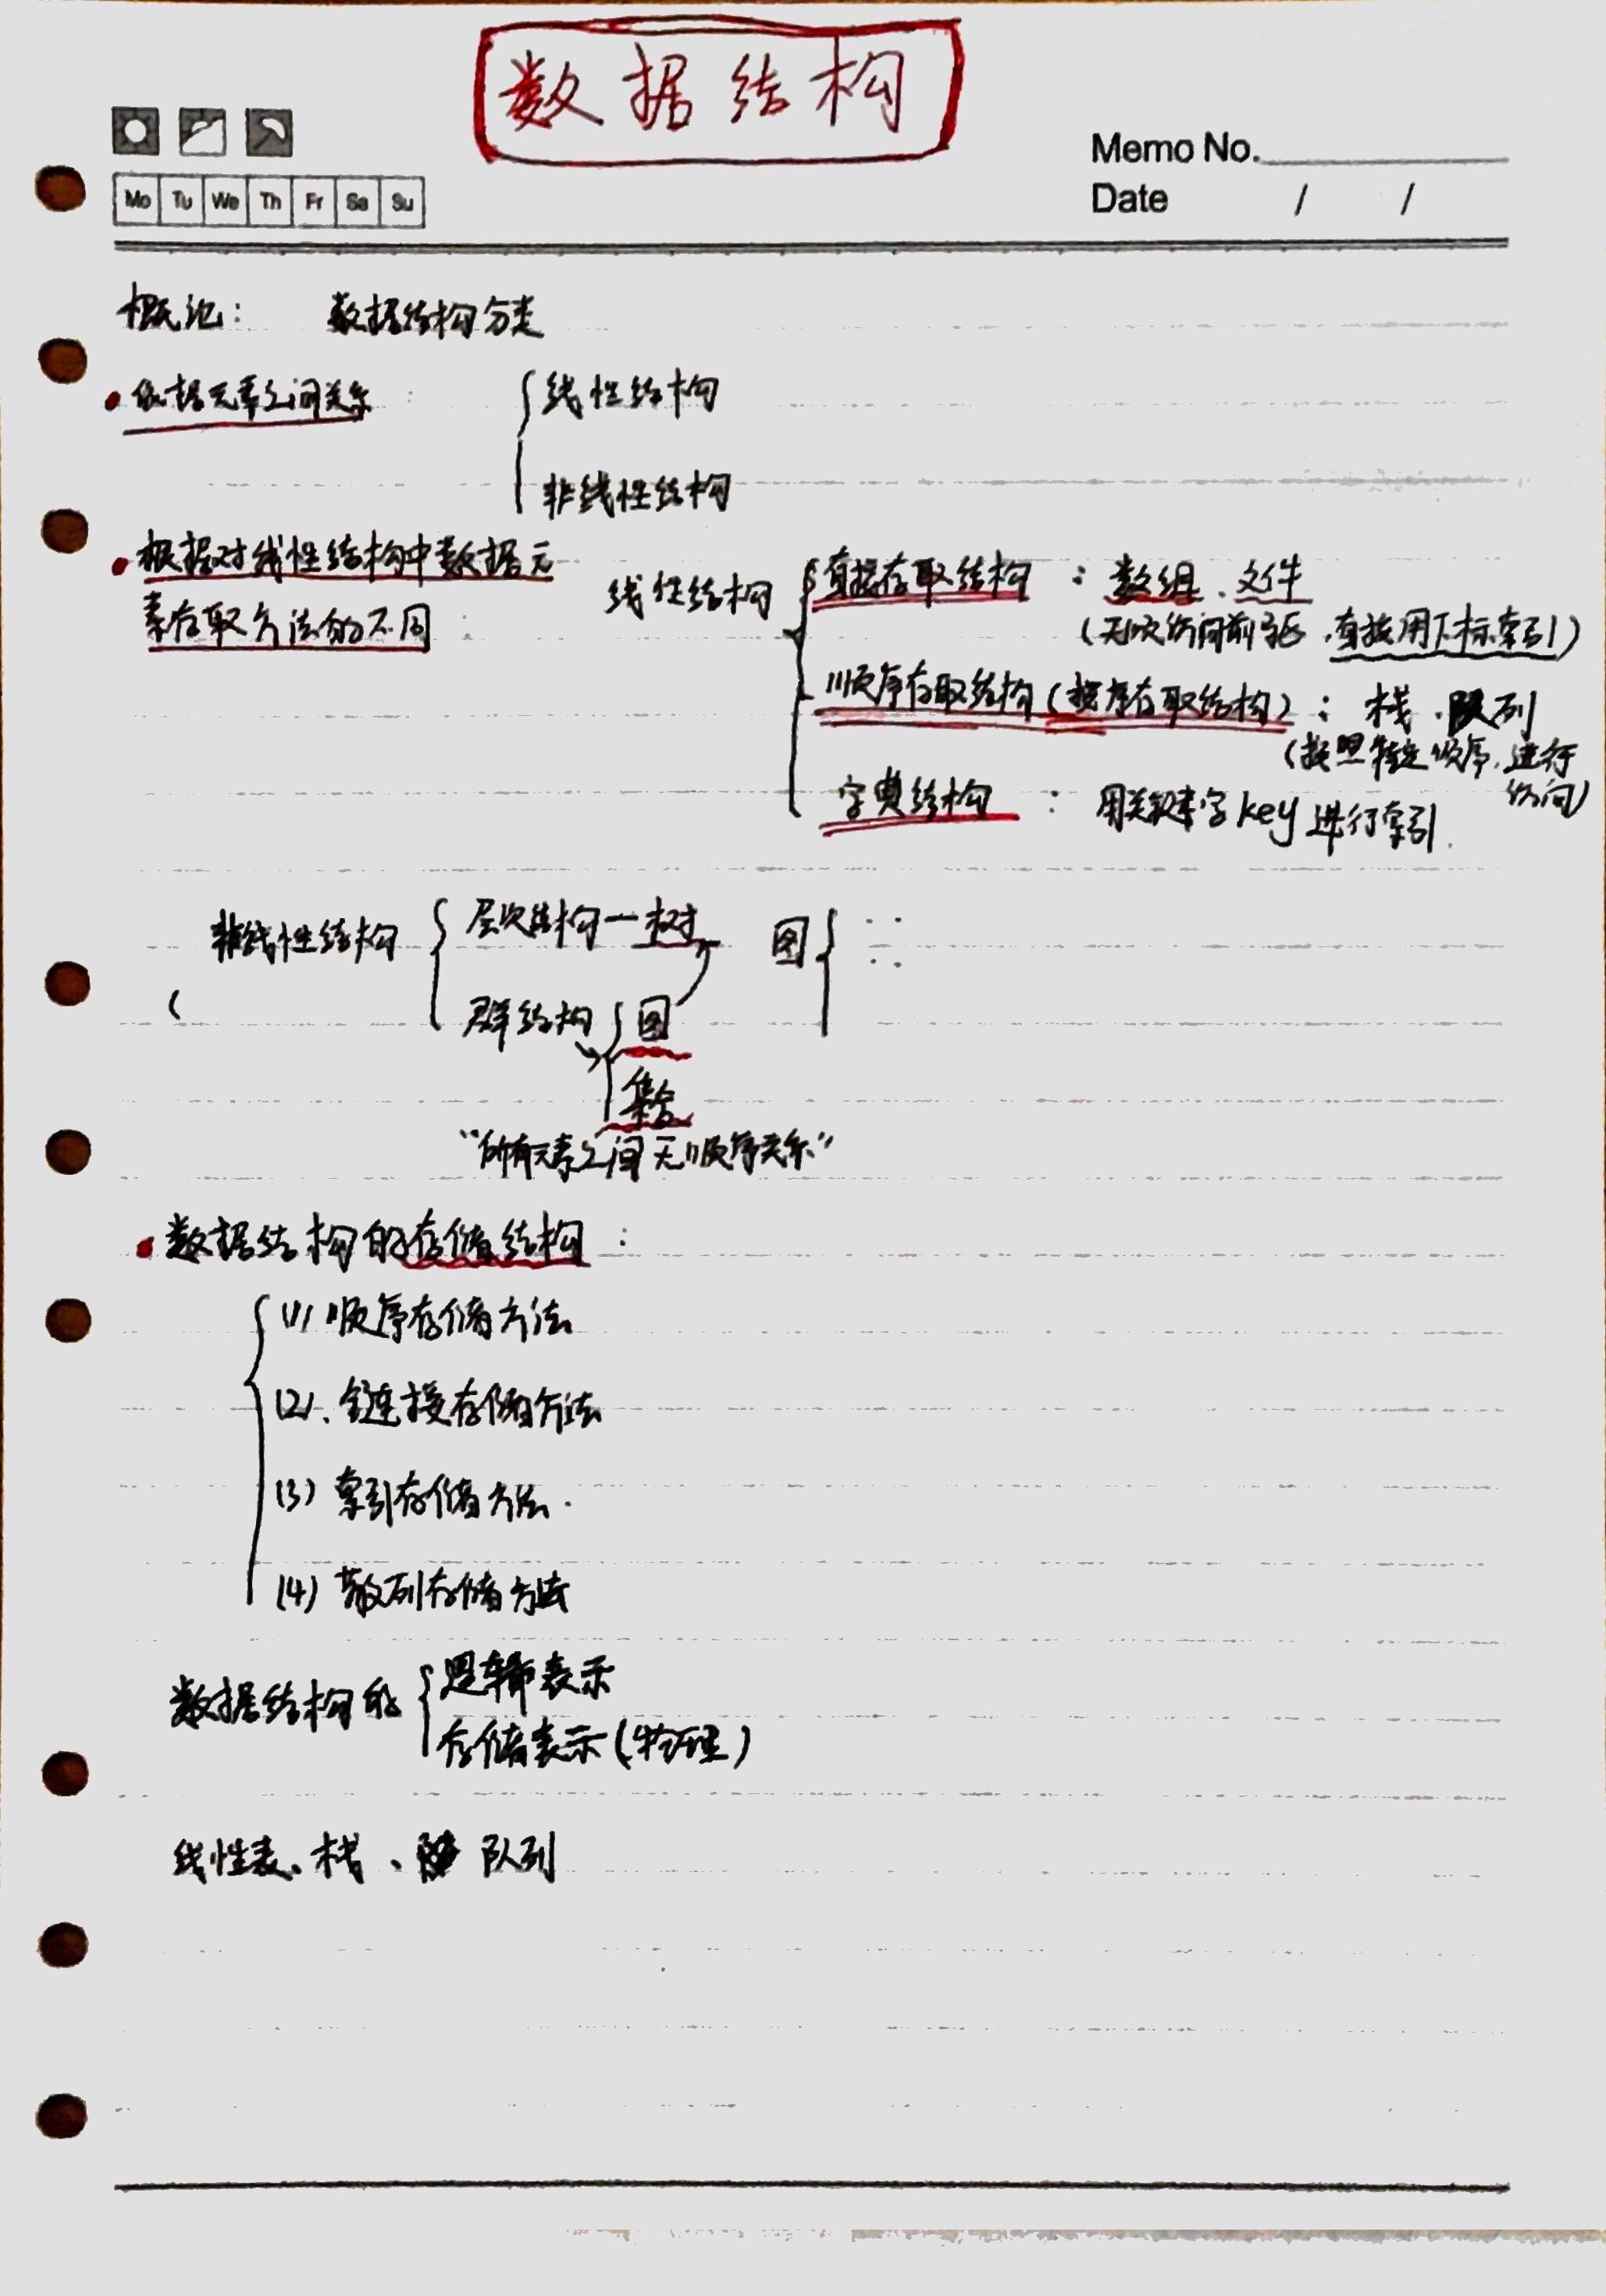 数据结构
Mo Tu We Th Fr Sa Su
Memo No.
Date / /
概论: 数据结构分类
依据元素之间关系 : 线性结构
非线性结构
根据对线性结构中数据元
素存取方法的不同 :
线性结构
直接存取结构 : 数组、文件
(无次访问前驱,直接用下标索引)
顺序存取结构(按序存取结构): 栈、队列
(按照特定顺序,进行
访问)
字典结构 : 用关键字key进行索引.
非线性结构
层次结构—树
图
(
群结构 图
集合
“所有元素之间无顺序关系”
数据结构的存储结构 :
(1) 顺序存储方法
(2). 链接存储方法
(3) 索引存储方法.
(4) 散列存储方法
数据结构的
逻辑表示
存储表示(物理)
线性表、栈、队列